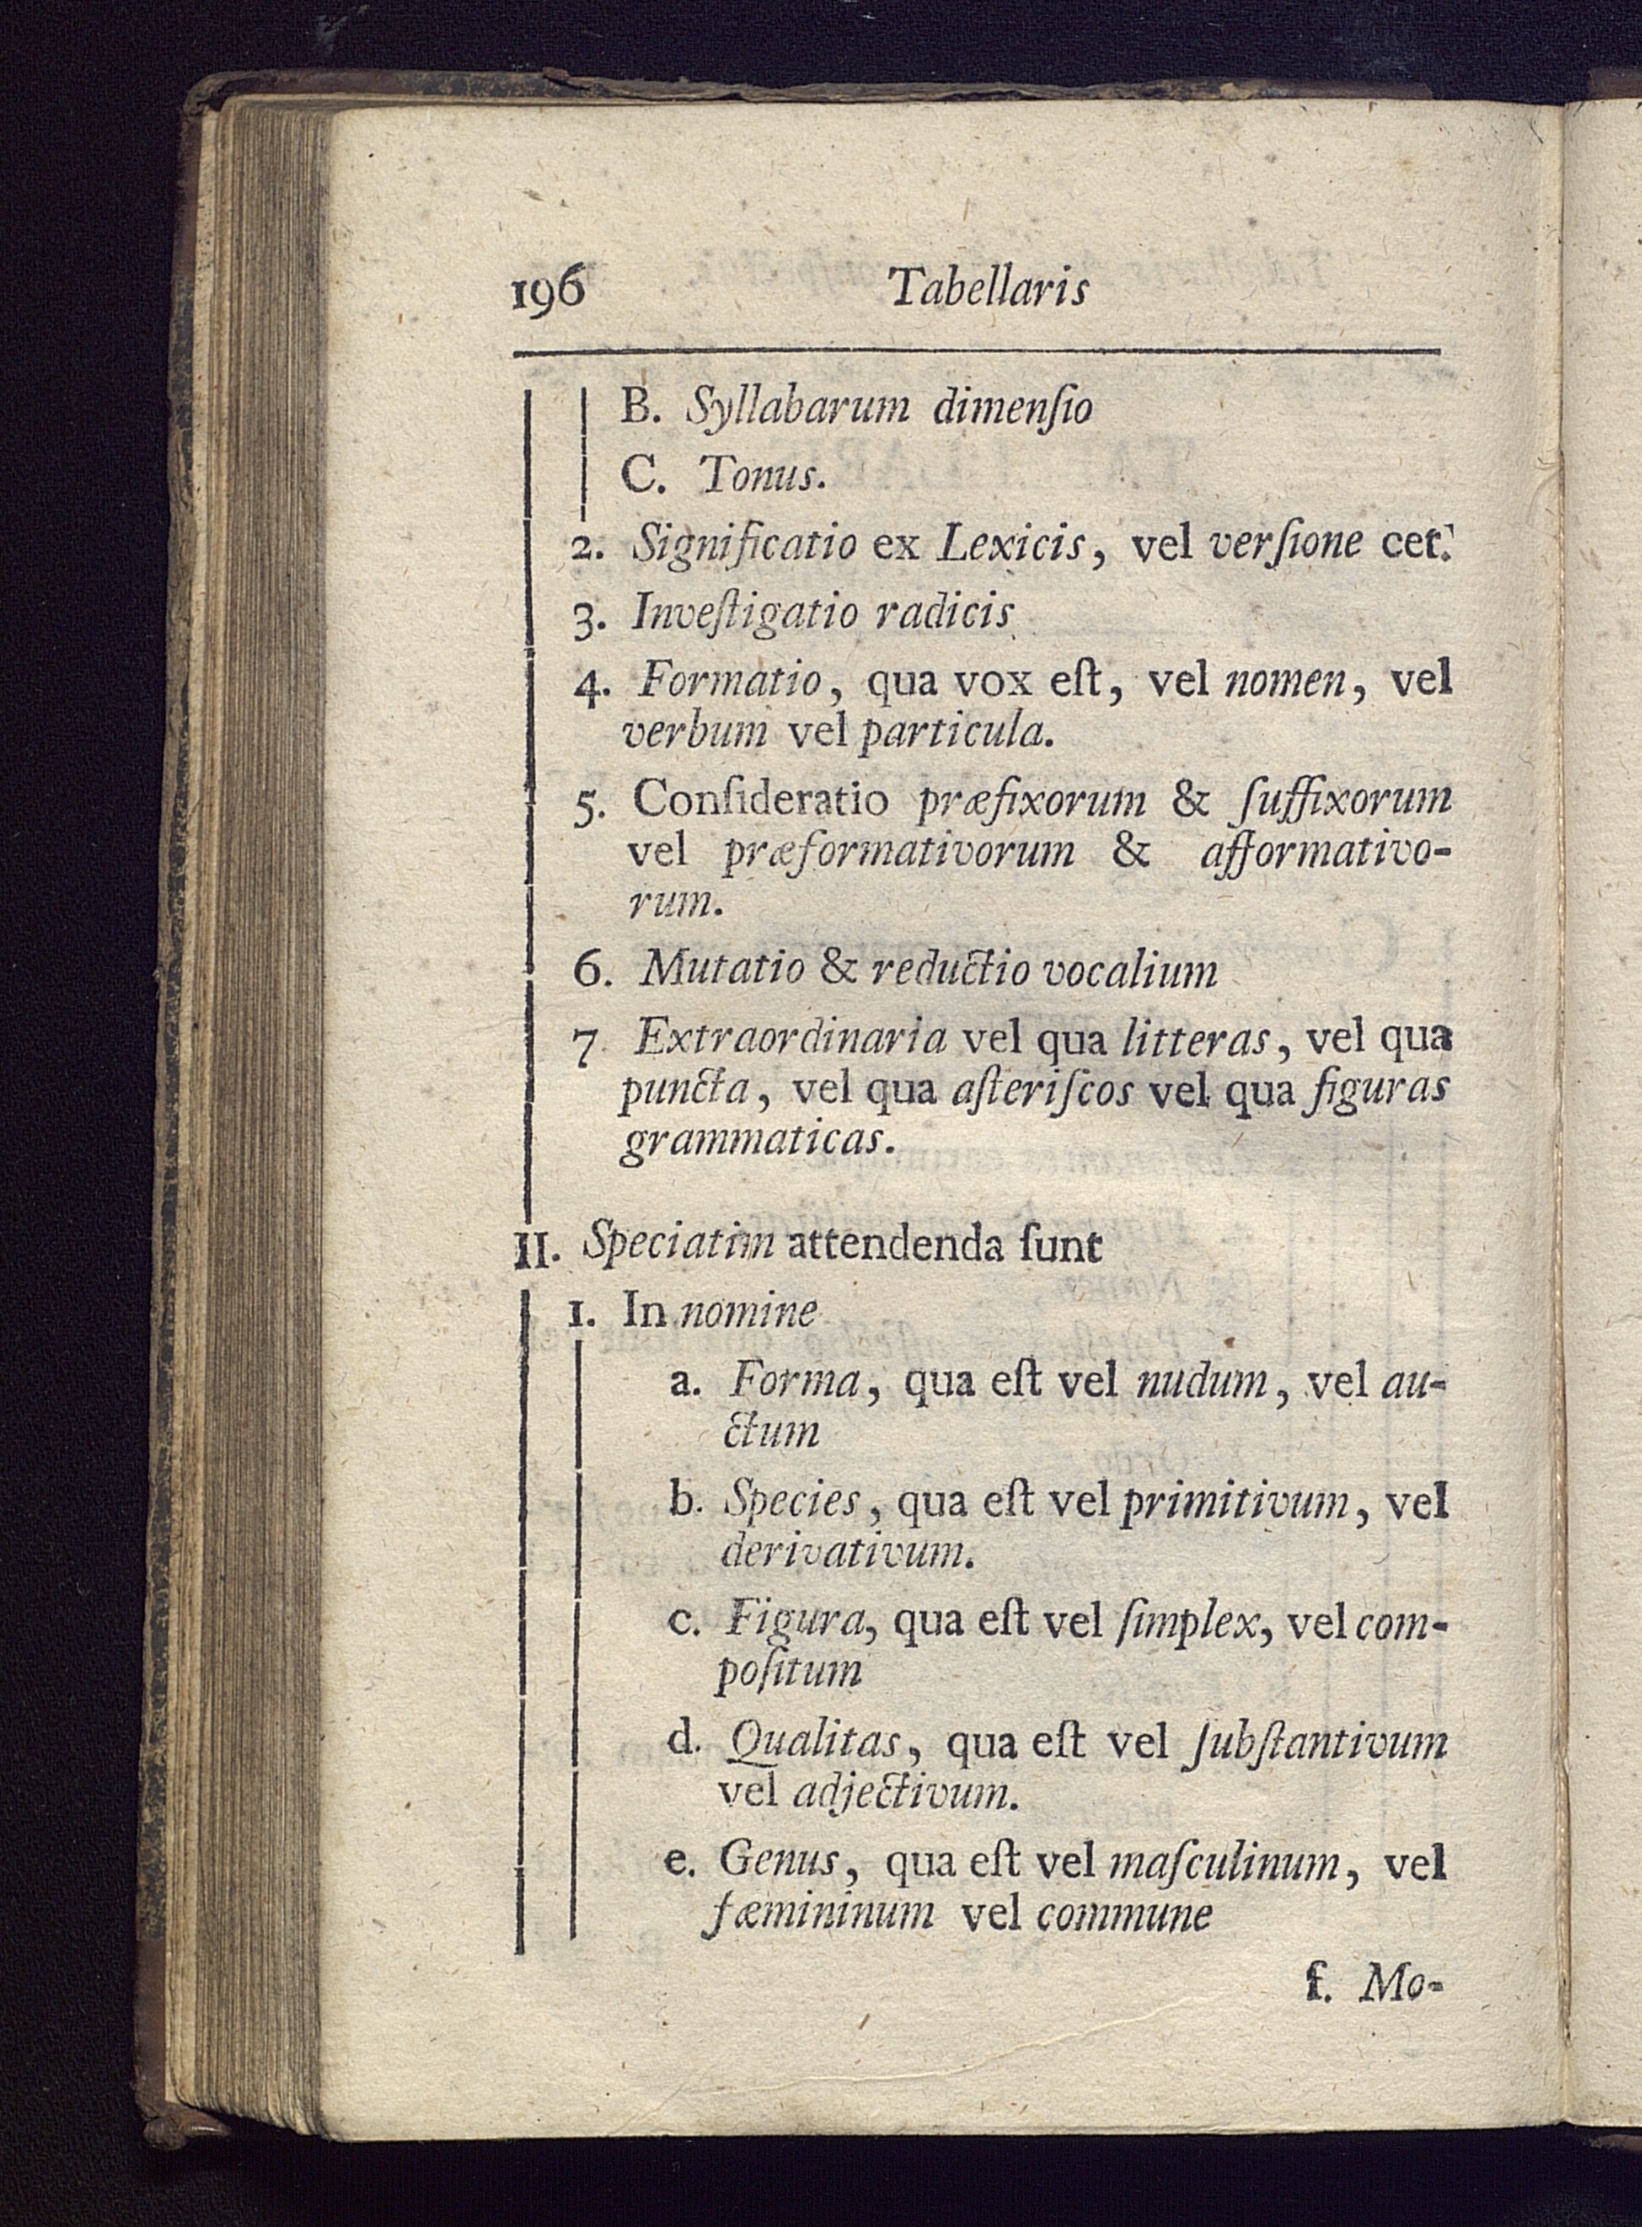 196 Tabellaris
B. Syllabarum dimenſio
C. Tonus.
2. Significatio ex Lexicis, vel verſione cet.
3. Inveſtigatio radicis
4. Formatio, qua vox eſt, vel nomen, vel
verbum vel particula.
5. Conſideratio præfixorum & ſuffixorum
vel præformativorum & afformativo-
rum.
6. Mutatio & reductio vocalium
7 Extraordinaria vel qua litteras, vel qua
puncta, vel qua aſteriſcos vel qua figuras
grammaticas.
II. Speciatim attendenda ſunt
1. In nomine
a. Forma, qua eſt vel nudum, vel au-
ctum
b. Species, qua eſt vel primitivum, vel
derivativum.
c. Figura, qua eſt vel ſimplex, vel com-
poſitum
d. Qualitas, qua eſt vel ſubſtantivum
vel adjectivum.
e. Genus, qua eſt vel maſculinum, vel
fæmininum vel commune
f. Mo-